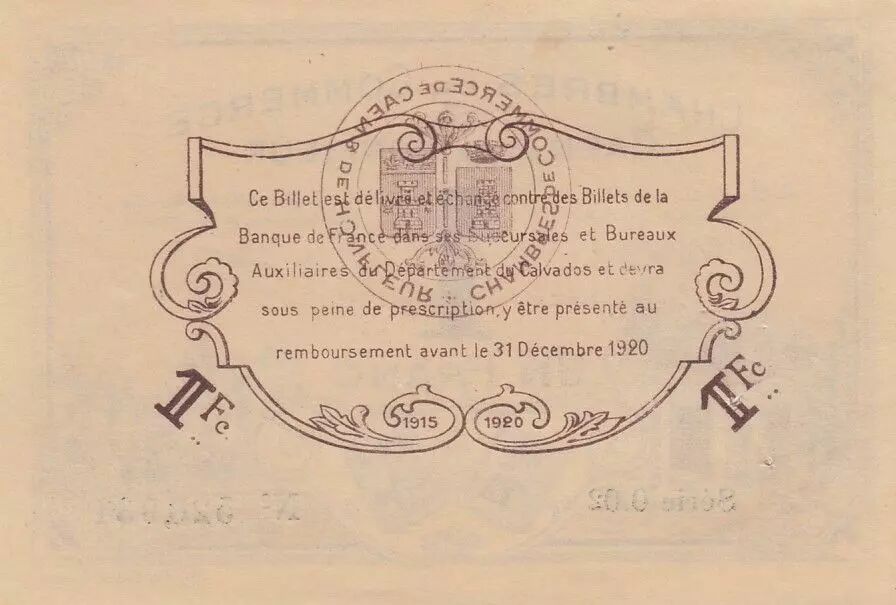 CHAMBRES DE COMMERCE DE CAEN & DE HONFLEUR
Ce Billet est délivré et échangé contre des Billets de la
Banque de France dans ses Succursales et Bureaux
Auxiliaires du Département du Calvados et devra
sous peine de prescription, y être présenté au
remboursement avant le 31 Décembre 1920
1 Fc
1 Fc
1915 1920
Série 0.02
Nº